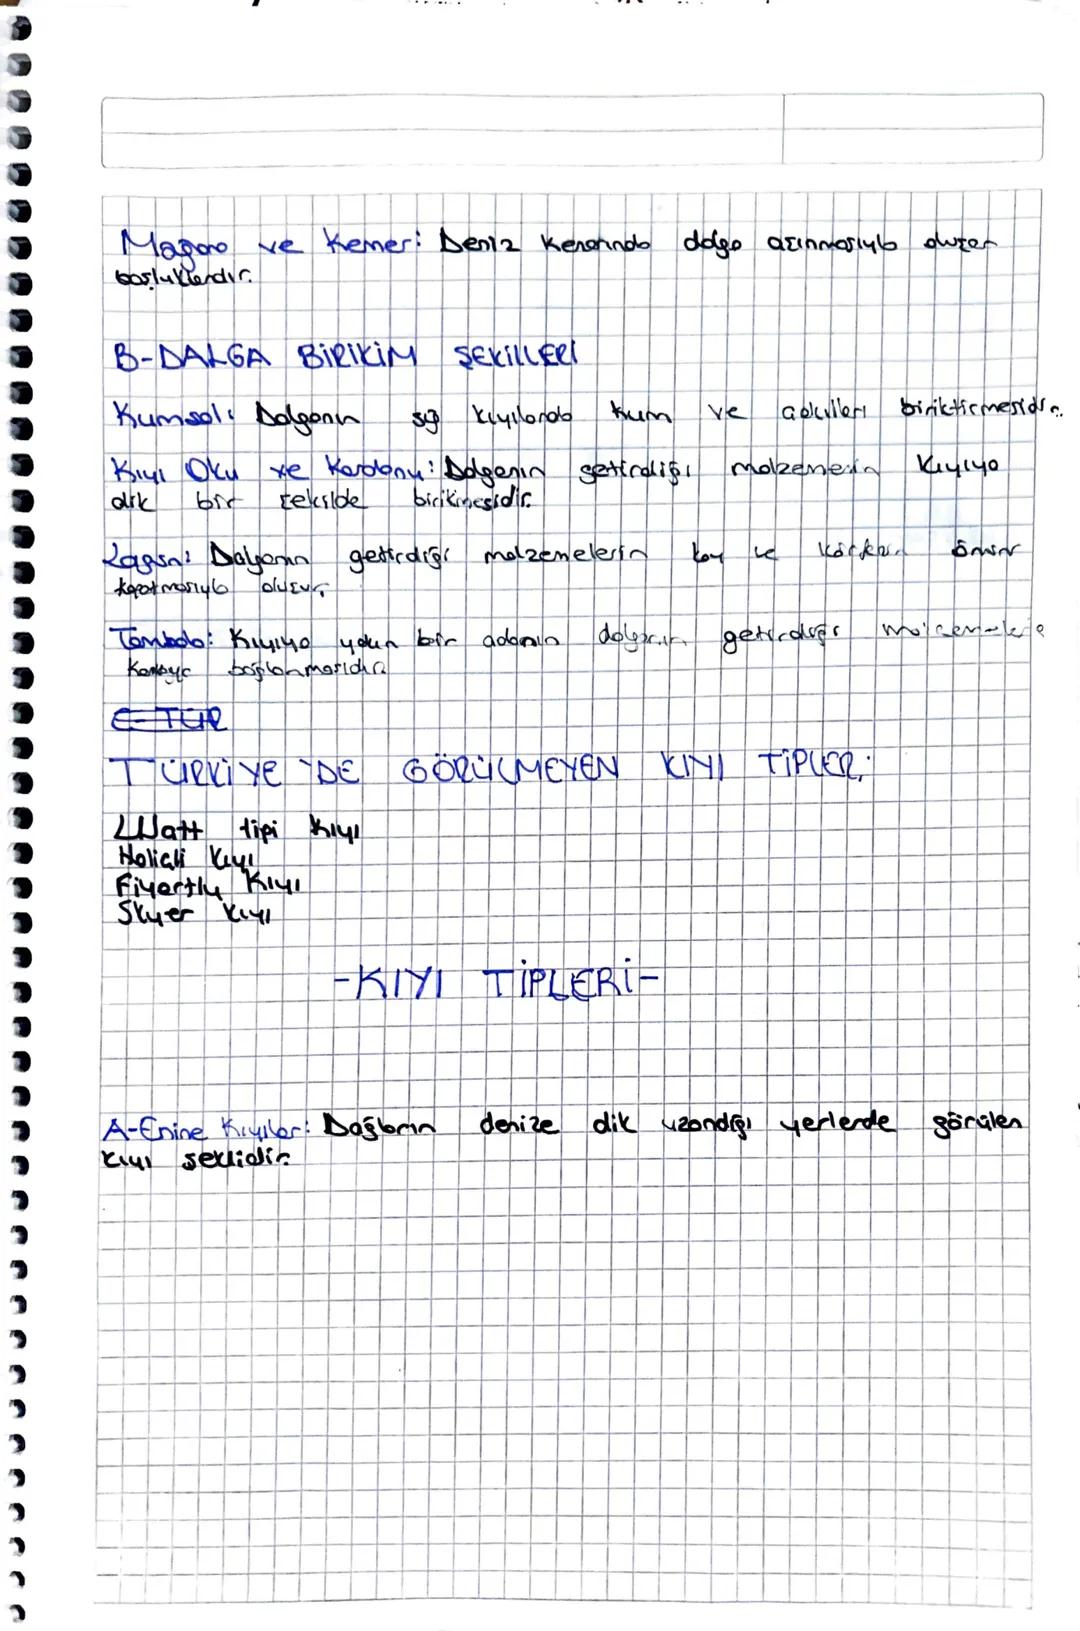 Mağara ve Kemer: Deniz kenarında dalga aşınmasıyla oluşan
boşluklardır.
B-DALGA BİRİKİM ŞEKİLLERİ
Kumsal: Dalganın sığ kıyılarda kum ve çakılları biriktirmesidir.
Kıyı Oku ve Kordonu: Dalganın getirdiği malzemenin kıyıya
dik bir şekilde birikmesidir.
Lagün: Dalganın getirdiği malzemelerin koy ve körfezin önünü
kapatmasıyla oluşur.
Tombolo: Kıyıya yakın bir adanın dalganın getirdiği malzemelerle
karaya bağlanmasıdır.
E-TÜR
TÜRKİYE'DE GÖRÜLMEYEN KIYI TİPLERİ
Watt tipi kıyı
Haliçli kıyı
Fiyertlu kıyı
Skyer kıyı
-KIYI TİPLERİ-
A-Enine Kıyılar: Dağların denize dik uzandığı yerlerde görülen
kıyı şeklidir.